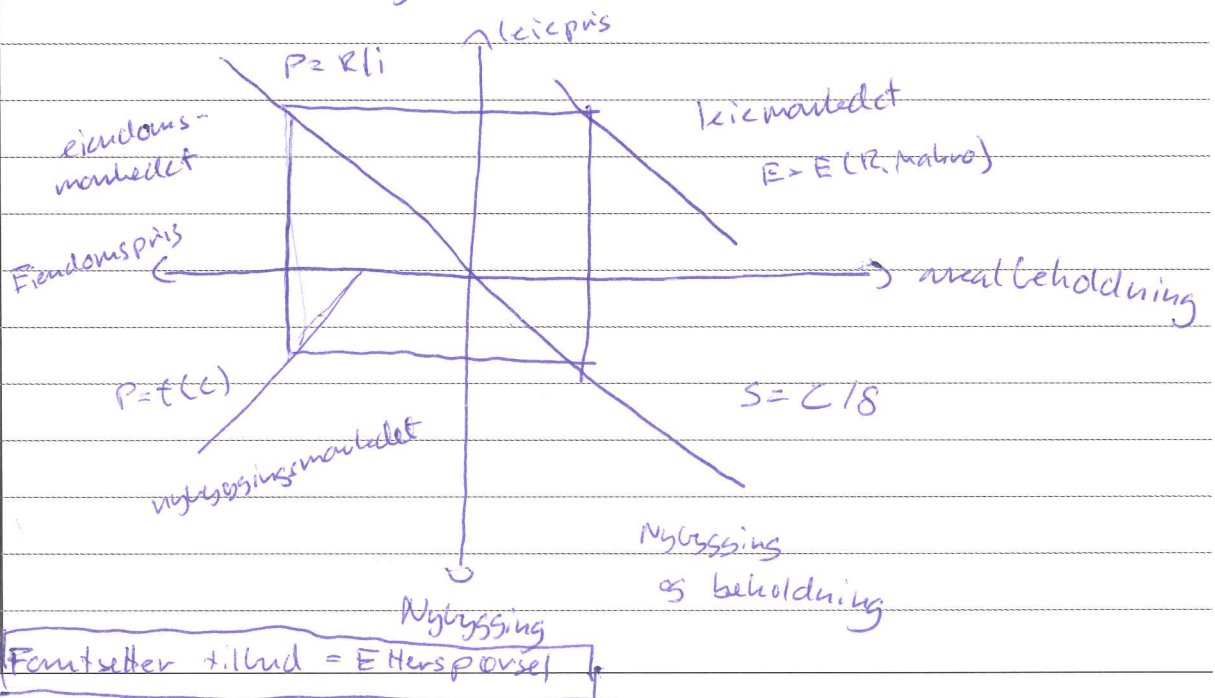 leiepris
P= R/i
eiendoms-
markedet
leiemarkedet
E= E(R, Makro)
Eiendomspris
arealbeholdning
P=f(C)
S= C/δ
nybyggingsmarkedet
Nybygging
og beholdning
Nybygging
tilbud = Etterspørsel